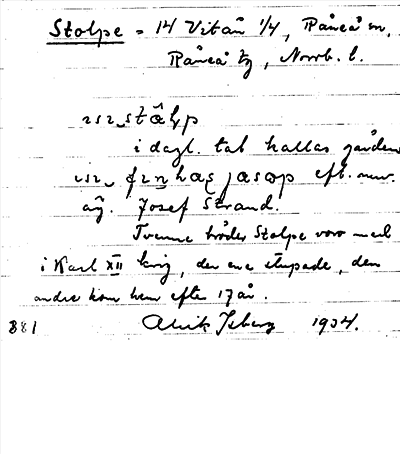 Stolpe = 14 Vitån 1/4, Råneå sn,
Råneå tg, Norrb. l.
i dagl. tal kallas gården
eft. nuv.
äg. Josef Strand.
Tvenne bröder Stolpe voro med
i Karl XII krig, den ene stupade, den
andre kom hem efter 17 år.
881 Alrik Isberg 1934.